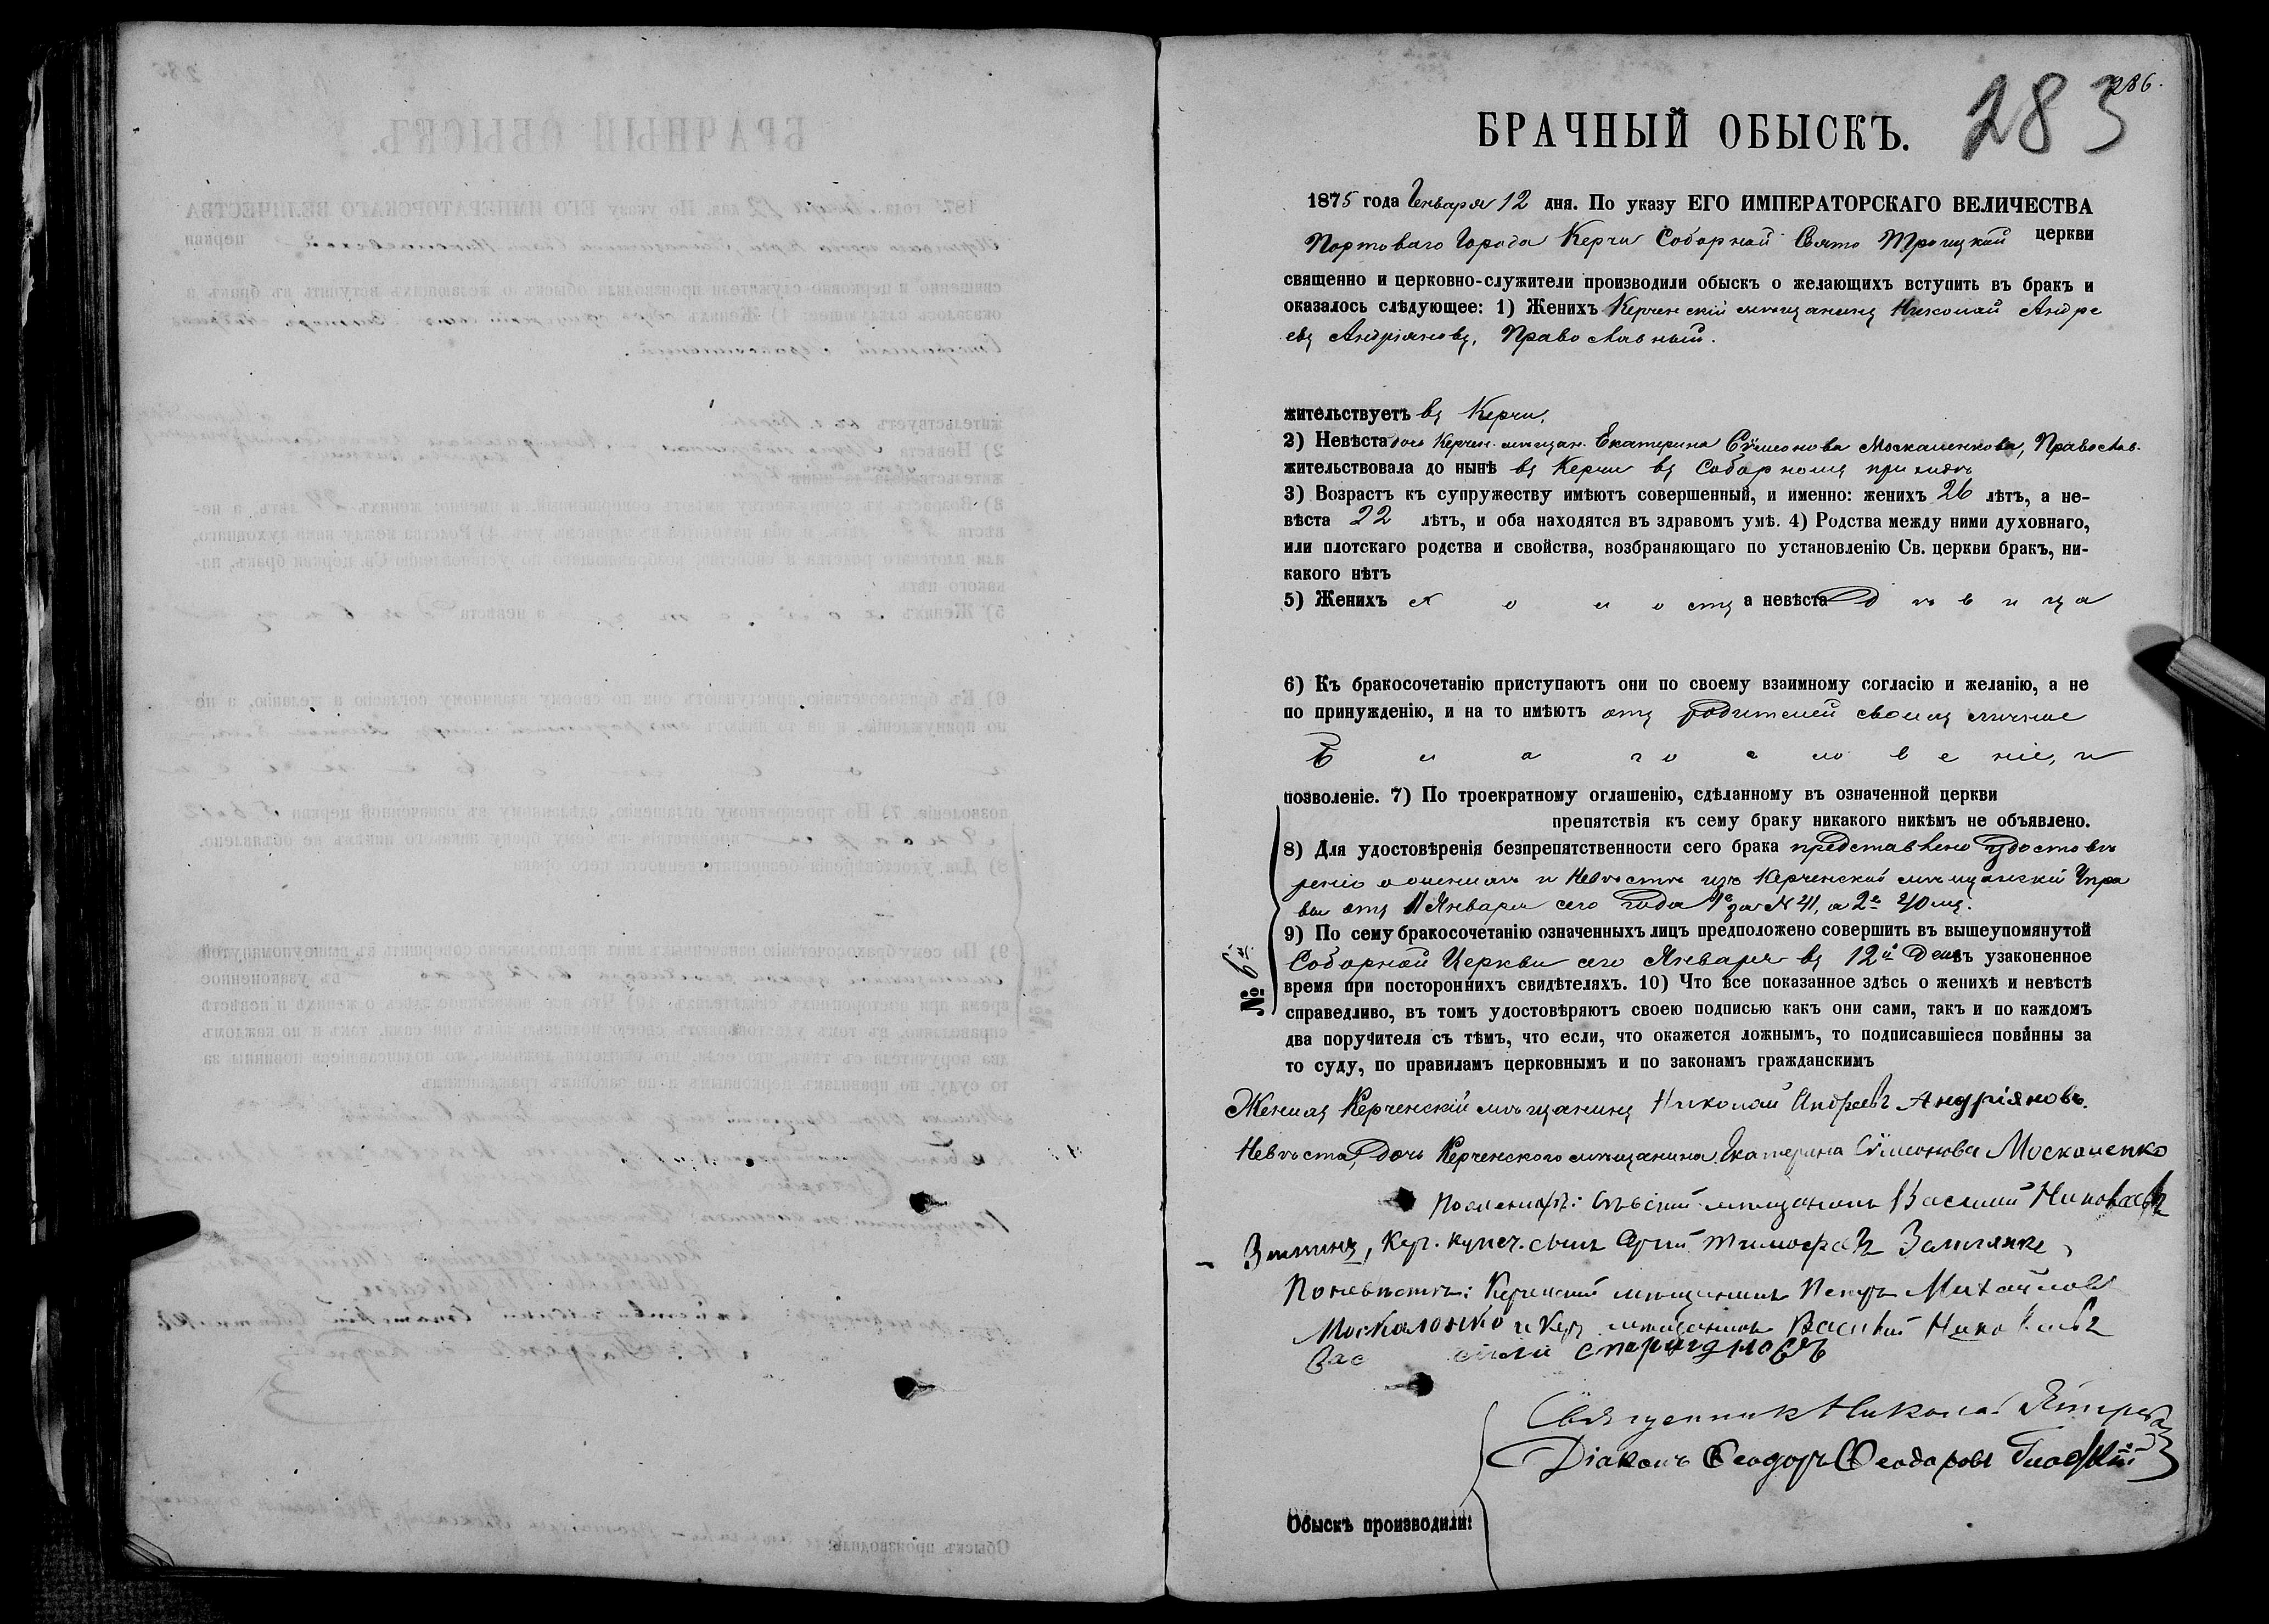 286.
283
БРАЧНЫЙ ОБЫСКЪ.
1875 года Января 12 дня. По указу ЕГО ИМПЕРАТОРСКАГО ВЕЛИЧЕСТВА
Портоваго Города Керчи Соборной Свято Троицкой церкви
священно и церковно-служители производили обыскъ о желающихъ вступить въ бракъ и
оказалось слѣдующее: 1) Женихъ Керченскій мѣщанинъ Николай Андре
евъ Андріановъ, Православный.
жительствуетъ въ Керчи,
2) Невѣста дочь Керчен. мѣщан. Екатерина Сѵмеонова Москаленкова, Православ.
жительствовала до нынѣ въ Керчи въ Соборномъ приходѣ
3) Возрастъ къ супружеству имѣютъ совершенный, и именно: женихъ 26 лѣтъ, а не-
вѣста 22 лѣтъ, и оба находятся въ здравомъ умѣ. 4) Родства между ними духовнаго,
или плотскаго родства и свойства, возбраняющаго по установленію Св. церкви бракъ, ни-
какого нѣтъ
5) Женихъ холостъ а невѣста Дѣвица
6) Къ бракосочетанію приступаютъ они по своему взаимному согласію и желанію, а не
по принужденію, и на то имѣютъ отъ родителей своихъ личное
Благословеніе, и
позволеніе. 7) По троекратному оглашенію, сдѣланному въ означенной церкви
препятствія къ сему браку никакого никѣмъ не объявлено.
8) Для удостовѣренія безпрепятственности сего брака представлено Удостовѣ
реніе о женихѣ и Невѣстѣ изъ Керченской мѣщанской Упра
вы отъ 11 Января сего года 1е за № 41, а 2е 40мъ.
9) По сему бракосочетанію означенныхъ лицъ предположено совершить въ вышеупомянутой
Соборной Церкви сего Января въ 12й День въ узаконенное
время при постороннихъ свидѣтеляхъ. 10) Что все показанное здѣсь о женихѣ и невѣстѣ
№ 6й.
справедливо, въ томъ удостовѣряютъ своею подписью какъ они сами, такъ и по каждомъ
два поручителя съ тѣмъ, что если, что окажется ложнымъ, то подписавшіеся повинны за
то суду, по правиламъ церковнымъ и по законамъ гражданскимъ
Женихъ Керченскій мѣщанинъ Николай Андреевъ Андріяновъ.
Невѣста, Дочь Керченского мѣщанина Екатерина Сѵмеонова Москаленко
По женихѣ: мѣщанинъ Василий Николаевъ
Зиминъ, Кер. купеч. сынъ Тимофеевъ
По невѣстѣ: Керченский мѣщанинъ Петръ Михайловъ
Москаленко и Кер. мѣщанинъ Василий Николаевъ
Священник Николай
Діаконъ Феодоръ Феодоровъ
Обыскъ производили: